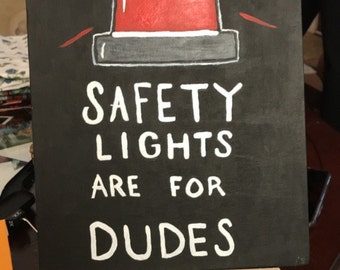 SAFETY
LIGHTS
ARE FOR
DUDES